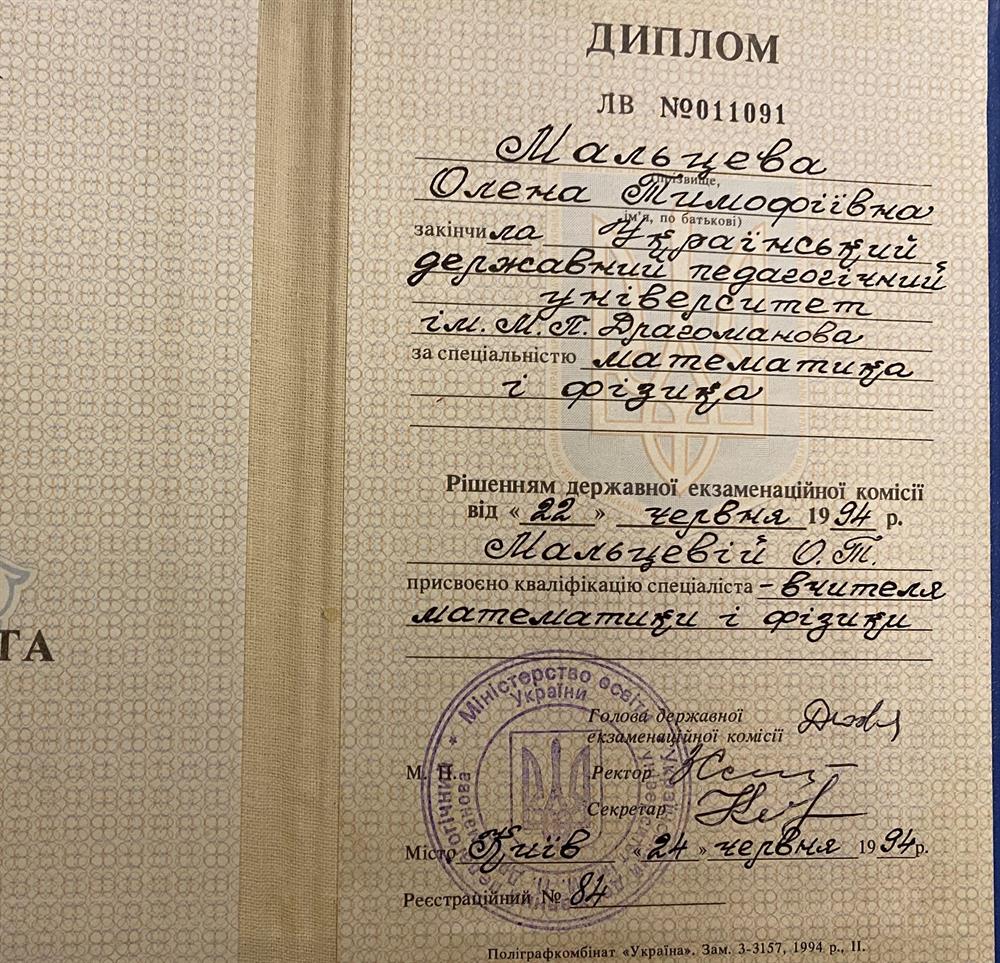 ДИПЛОМ
ЛВ №011091
Мальцева
(прізвище,
Олена Тимофіївна
ім'я, по батькові)
закінчила Український
державний педагогічний
університет
ім. М.П. Драгоманова
за спеціальністю математика
і фізика
Рішенням державної екзаменаційної комісії
від «22» червня 1994 р.
Мальцевій О.Т.
присвоєно кваліфікацію спеціаліста – вчителя
математики і фізики
Міністерство освіти
України
Голова державної
екзаменаційної комісії
М. П.
Ректор
Секретар
Місто Київ «24» червня 1994р.
Реєстраційний № 84
Поліграфкомбінат «Україна». Зам. 3-3157, 1994 р., ІІ.
ТА